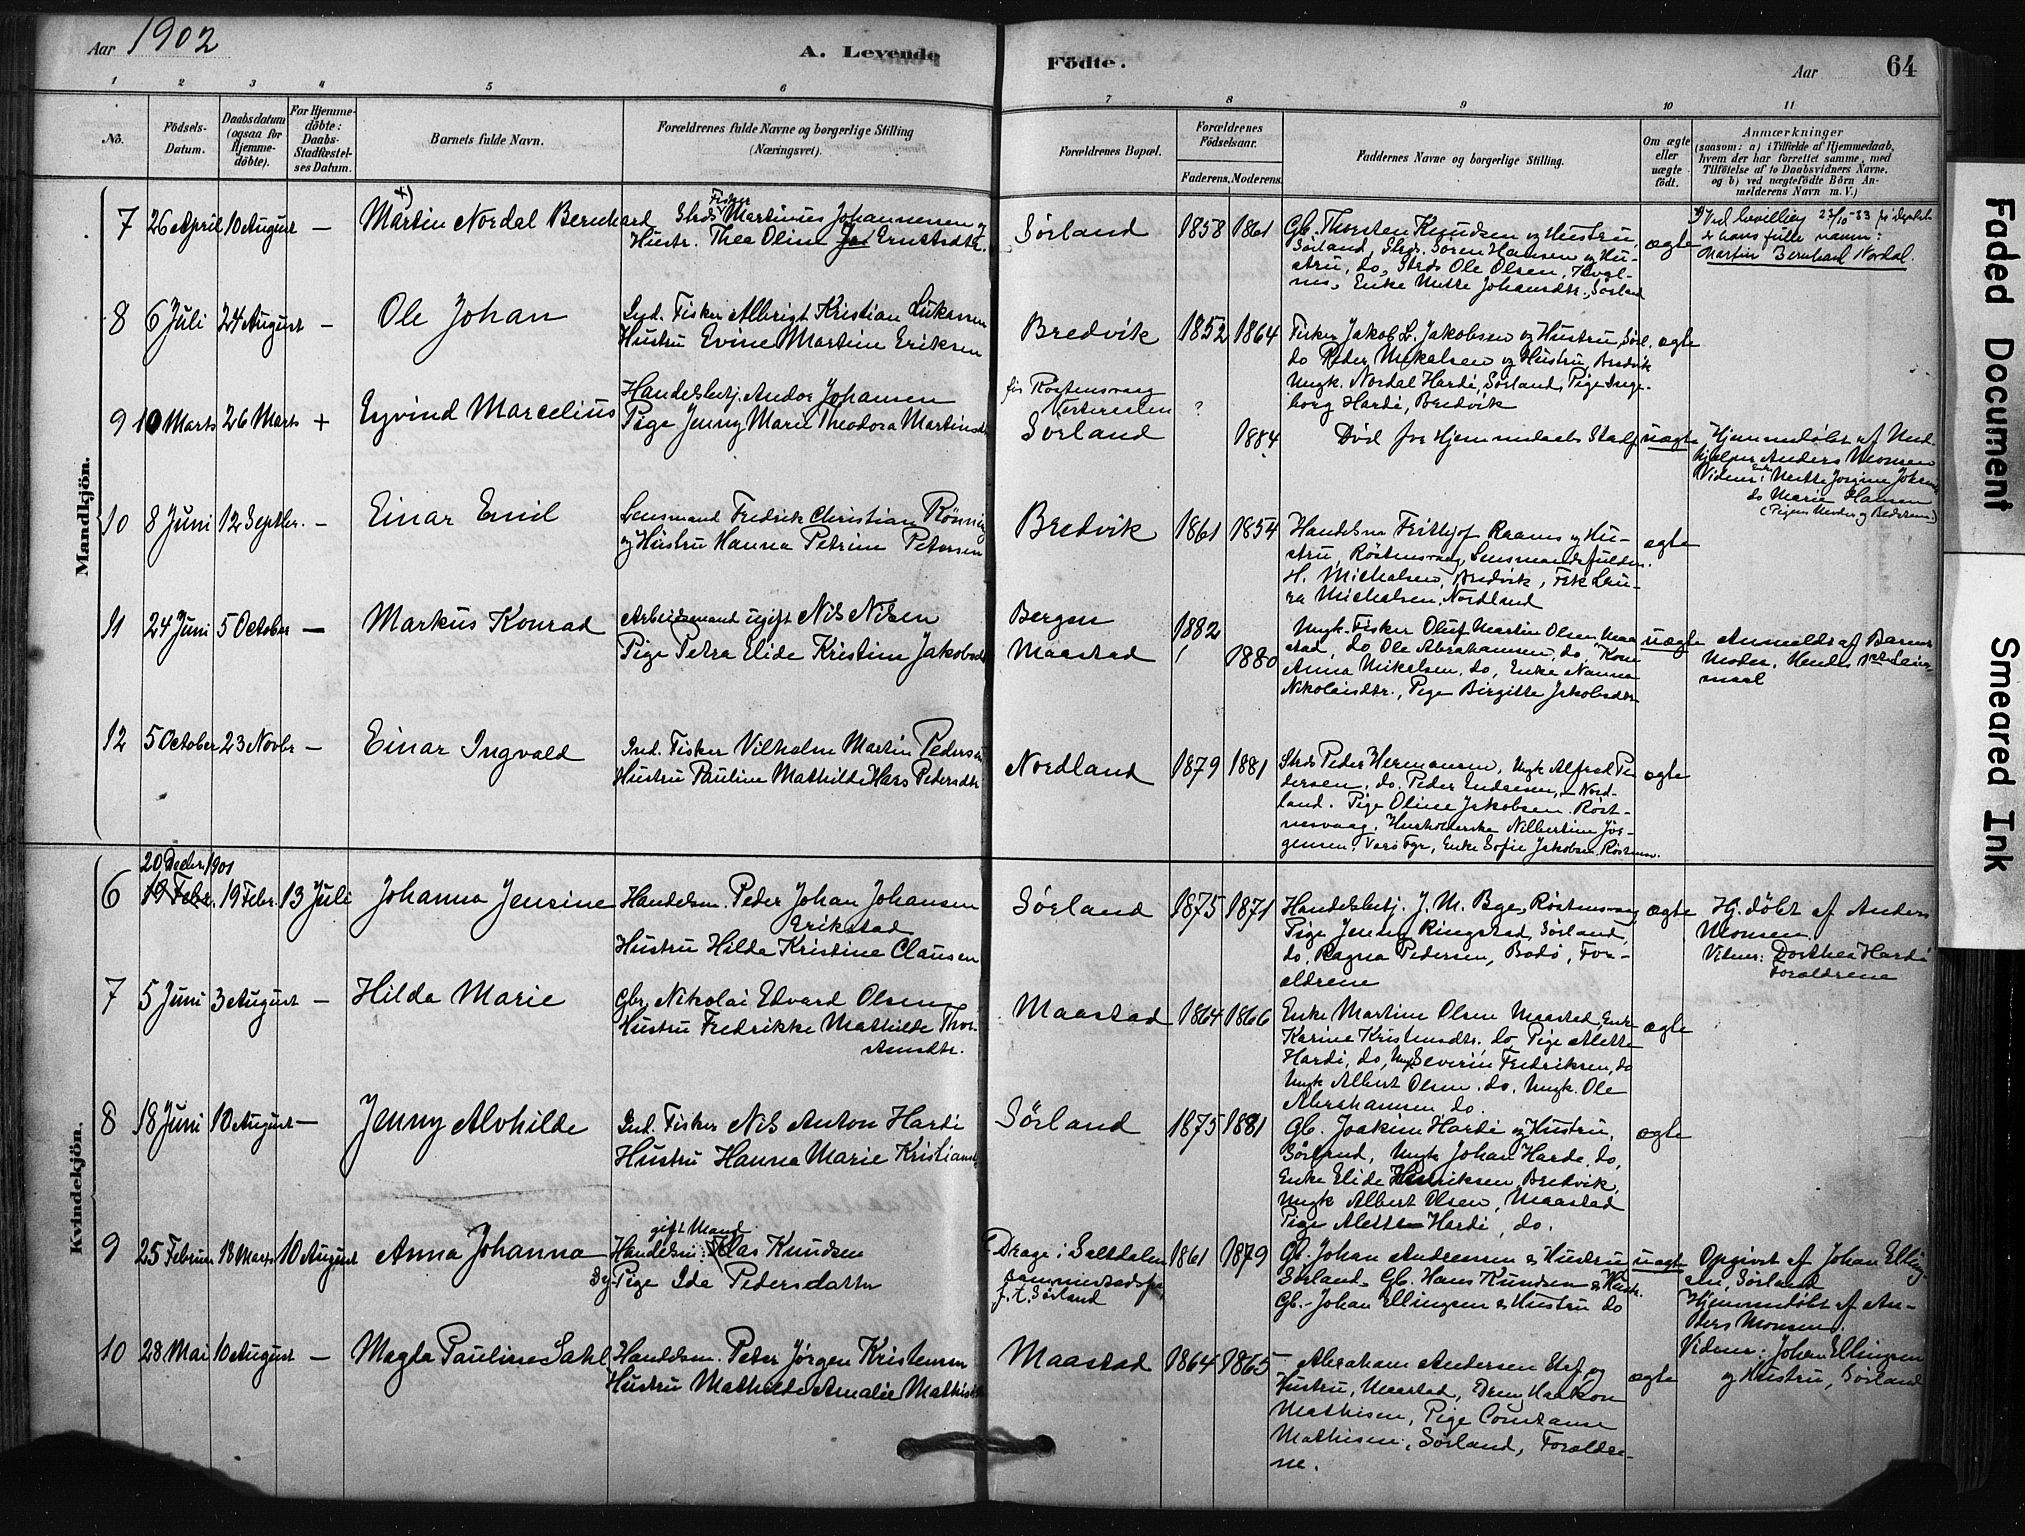 Aar 1902
A. Levende Fødte.
Aar
64
1 2 3 4 5 6 7 8 9 10 11
No.
Födsels-
Datum.
Daabsdatum
(ogsaa for
Hjemme-
döbte).
For Hjemme-
döbte:
Daabs-
Stadfæstel-
ses Datum.
Barnets fulde Navn.
Forældrenes fulde Navne og borgerlige Stilling
(Næringsvei).
Forældrenes Bopæl.
Forældrenes
Födselsaar.
Faderens. Moderens.
Faddernes Navne og borgerlige Stilling.
Om ægte
eller
uægte
födt.
Anmærkninger
(saasom: a) i Tilfælde af Hjemmedaab,
hvem der har forrettet samme, med
Tilföielse af to Daabsvidners Navne.
og b) ved uægtefödte Börn An-
melderens Navn m. V.)
Mandkjön.
7 26 April 10 August — Martin Nordal Bernhard
Fisker
Strds Martinius Johannesen og
Hustr. Thea Oline Ernstsdtr.
Sørland 1858 1861
Gb. Thorsten Knudsen og Hustru,
Sørland, Strds. Søren Hansen og Hu-
stru, do, Strds Ole Olsen,
Enke Mette Johansdtr., Sørland
ægte
Ved bevilling 23/10-33
hans fulle navn:
Martin Bernhard Nordal.
8 6 Juli 24 August — Ole Johan
Ind. Fisker Albrigt Kristian Luksen
Hustru Evine Martine Eriksen
Bredvik 1852 1864
Fisker Jakob L. Jakobsen og Hustru, Sørl.
do Peder Mikalsen og Hustru, Bredvik
Ungk. Nordal Hardi, Sørland, Pige Inge-
borg Hardi, Bredvik
ægte
9 10 Marts 26 Marts + Eyvind Marcelius
Handelsbetj. Andor Johansen
Pige Jenny Marie Theodora Martinsdtr
Røstensvaag
Vesteraalen ?
Sørland 1884
Død før Hjemmedaabs Stadf
uægte
Hjemmedøbt af
Anders Monsen
Vidner: Enke Mette Jorgine
do Marie Hansen
(Pigens Moder og Bedstemor)
10 8 Juni 12 Septbr. — Einar Emil
Lensmand Fredrik Christian Rønning
og Hustru Hanna Petrine Petersen
Bredvik 1861 1854
Handelsm Frithjof Raams og Hu-
stru, Røstensvaag, Lensmandsfuldm.
H. Michalsen, Bredvik, Frk Lau-
ra Michalsen, Nordland
ægte
11 24 Juni 5 October — Markus Konrad
Arbeidsmand ugift Nils Nilsen
Pige Petra Elide Kristine Jakobsdtr
Bergen 1882
Maastad 1880
Ungk. Fisker Oluf Martin Olsen, Maa-
stad, do Ole Abrahamsen, do, Kone
Anna Mikelsen, do, Enke Nanna
Nikolaisdtr., Pige Birgitte Jakobsdtr
uægte
Anmeldt af Barnets
Moder, Hendes 1ste Leier-
maal
12 5 October 23 Novbr — Einar Ingvald
Ind. Fisker Vilhelm Martin Pedersen
Hustru Pauline Mathilde Hass Pedersdtr
Nordland 1879 1881
Strds Peder Hermansen, Ungk Alfred Pe-
dersen, do. Peder Endresen, Nord-
land. Pige Oline Jakobsen Røst-
nesvaag, Husholderske Nilbertine Jør-
gensen, Værø Fyr, Enke Sofie Jakobsen, Røstnesv.
ægte
Kvindekjön.
20 Decbr. 1901
6 19 Febr. 19 Febr. 13 Juli Johanna Jensine
Handelsm. Peder Johan Johansen
Erikstad
Hustru Hilda Kristine Clausen
Sørland 1875 1871
Handelsbetj. J. M. Bge, Røstensvaag
Pige Jenny Ringstad, Sørland,
do. Ragna Pedersen, Bodø, For-
ældrene
ægte
Hj. døbt af Anders
Monsen.
Vidner: Dorthea Hardi
Forældrene
7 5 Juni 3 August — Hilda Marie
Gbr. Nikolai Edvard Olsen
Hustru Fredrikke Mathilde Thor-
Amsdtr.
Maastad 1864 1866
Enke Martine Olsen Maastad, Enke
Karine Kristensdtr. do, Pige Alette
Hardi, do, Ungk Severin Fredriksen, do
Ungk Albert Olsen, do, Ungk. Ole
Abrahamsen do.
ægte
8 18 Juni 10 August — Jenny Alvhilde
Ind. Fisker Nils Anton Hardi
Hustru Hanna Marie Kristiansdtr
Sørland 1875 1881
Gb. Joakim Hardi og Hustru,
Sørland, Ungk Johan Harde, do,
Enke Elide Henriksen, Bredvik,
Ungk Albert Olsen, Maastad
Pige Alette Hardi, do.
ægte
9 25 Februar 18 Marts 10 August Anna Johanna
gift Mand
Handelsm: Klas Knudsen
og Pige Ida Pedersdatter
Drage i Saltdalen 1861 1879
f. t. Sørland
Gb. Johan Andreassen & Hustru
Sørland. Gb. Hans Knudsen & Hustr.
Gb. Johan Ellingsen & Hustru do
uægte
Opgivet af Johan Elling-
sen, Sørland
Hjemmedøbt af An-
ders Monsen.
Vidner: Johan Ellingsen
og Hustru, Sørland
10 28 Mai 10 August — Magda Pauline Sahl
Handelsm. Peter Jørgen Kristensen
Hustru Mathilde Amalie Mathisdtr
Maastad 1864 1865
Abraham Andersen Stef. og
Hustru, Maastad, Dreng Haakon
Mathisen, Pige Constanse
Mathisen, Sørland, Forældre-
ne.
ægte
Faded Document
Smeared Ink